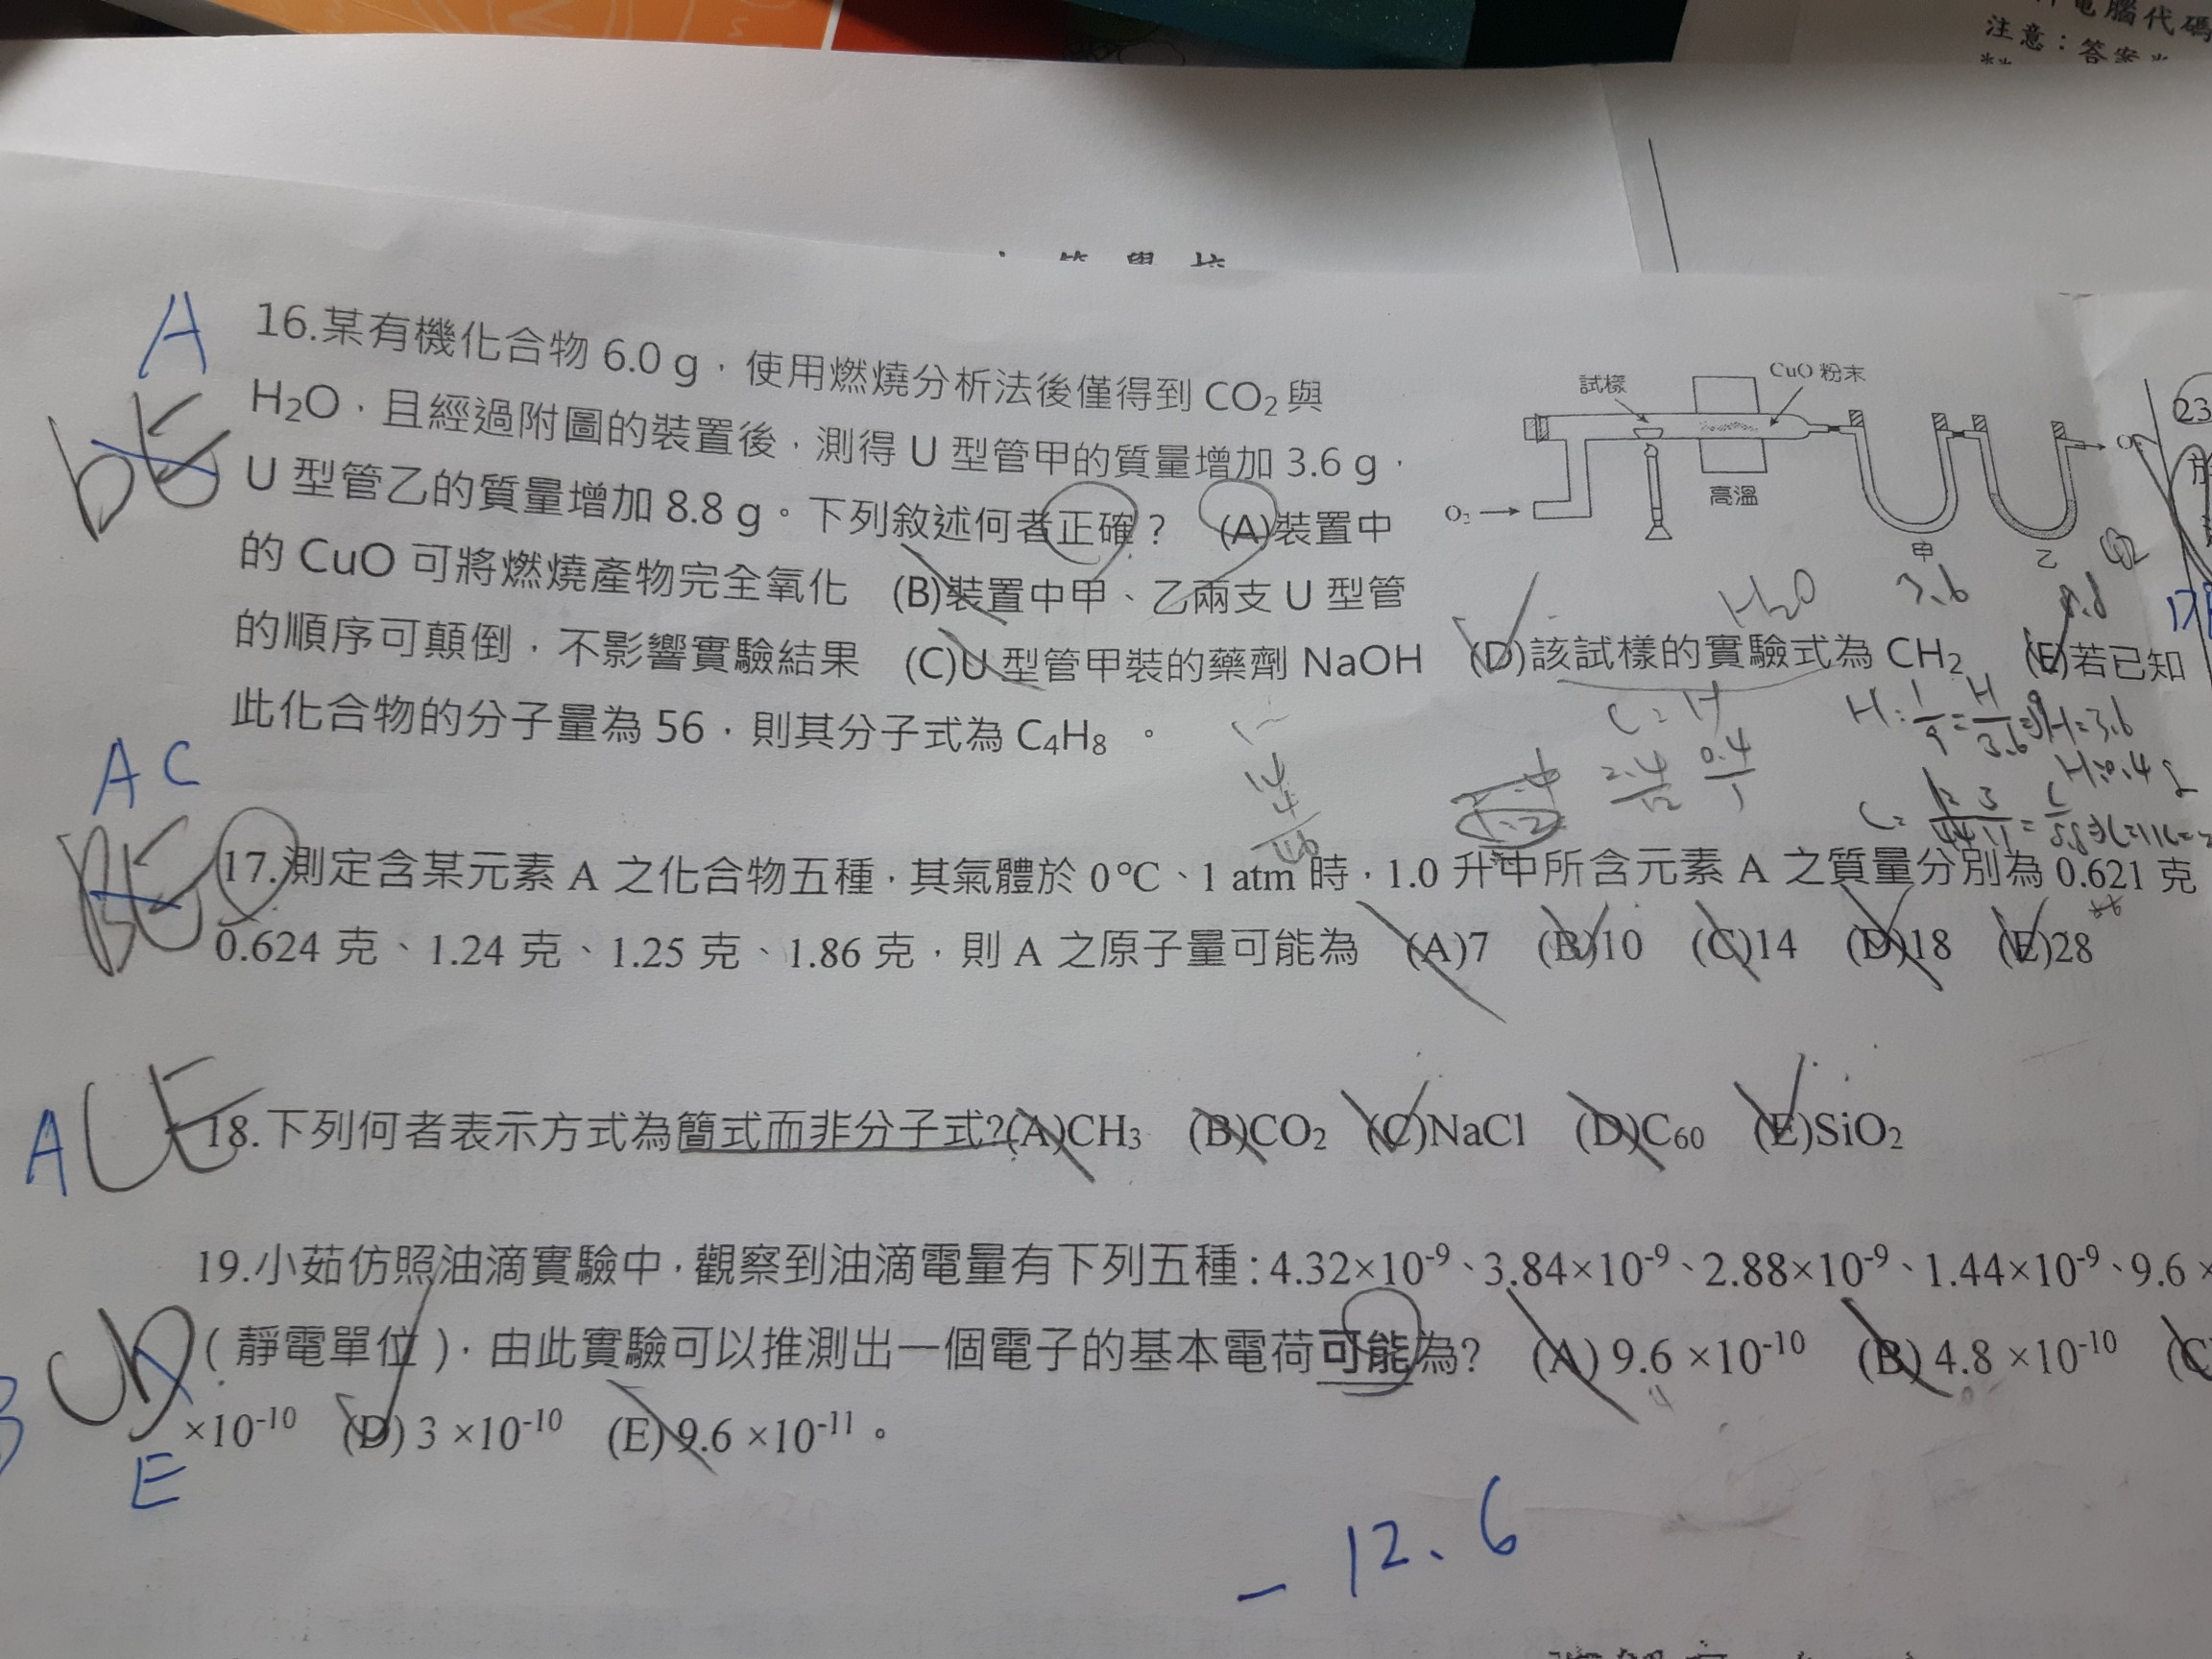 電腦代碼
注意：答案
16.某有機化合物 6.0 g，使用燃燒分析法後僅得到 CO₂ 與
H₂O，且經過附圖的裝置後，測得 U 型管甲的質量增加 3.6 g，
U 型管乙的質量增加 8.8 g。下列敘述何者正確？ (A)裝置中
的 CuO 可將燃燒產物完全氧化 (B)裝置中甲、乙兩支 U 型管
的順序可顛倒，不影響實驗結果 (C)U 型管甲裝的藥劑 NaOH (D)該試樣的實驗式為 CH₂ (E)若已知
此化合物的分子量為 56，則其分子式為 C₄H₈ 。
試樣
CuO 粉末
高溫
O₂
甲
乙
H₂O
3.6
8.8
A
bE
23
C = H
2.4/12 0.4/1
H: 1/9 = H/3.6 9H=3.6
H=0.4
A C
BE
17.測定含某元素 A 之化合物五種，其氣體於 0℃、1 atm 時，1.0 升中所含元素 A 之質量分別為 0.621 克
0.624 克、1.24 克、1.25 克、1.86 克，則 A 之原子量可能為 (A)7 (B)10 (C)14 (D)18 (E)28
A
CE
18.下列何者表示方式為簡式而非分子式?(A)CH₃ (B)CO₂ (C)NaCl (D)C₆₀ (E)SiO₂
19.小茹仿照油滴實驗中，觀察到油滴電量有下列五種：4.32×10⁻⁹、3.84×10⁻⁹、2.88×10⁻⁹、1.44×10⁻⁹、9.6 ×
(靜電單位)，由此實驗可以推測出一個電子的基本電荷可能為? (A) 9.6 ×10⁻¹⁰ (B) 4.8 ×10⁻¹⁰ (C
×10⁻¹⁰ (D) 3 ×10⁻¹⁰ (E) 9.6 ×10⁻¹¹ 。
B
E
− 12.6